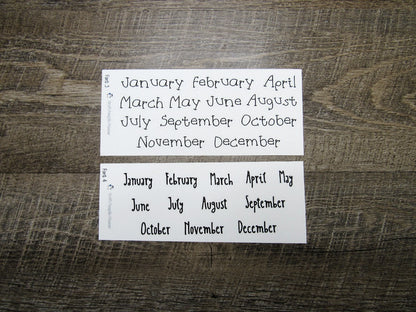 Font 3
January february April
March May June August
July September October
November December
Font 4
January February March April May
June July August September
October November December